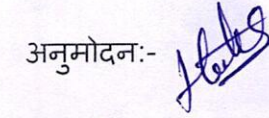 अनुमोदन:-